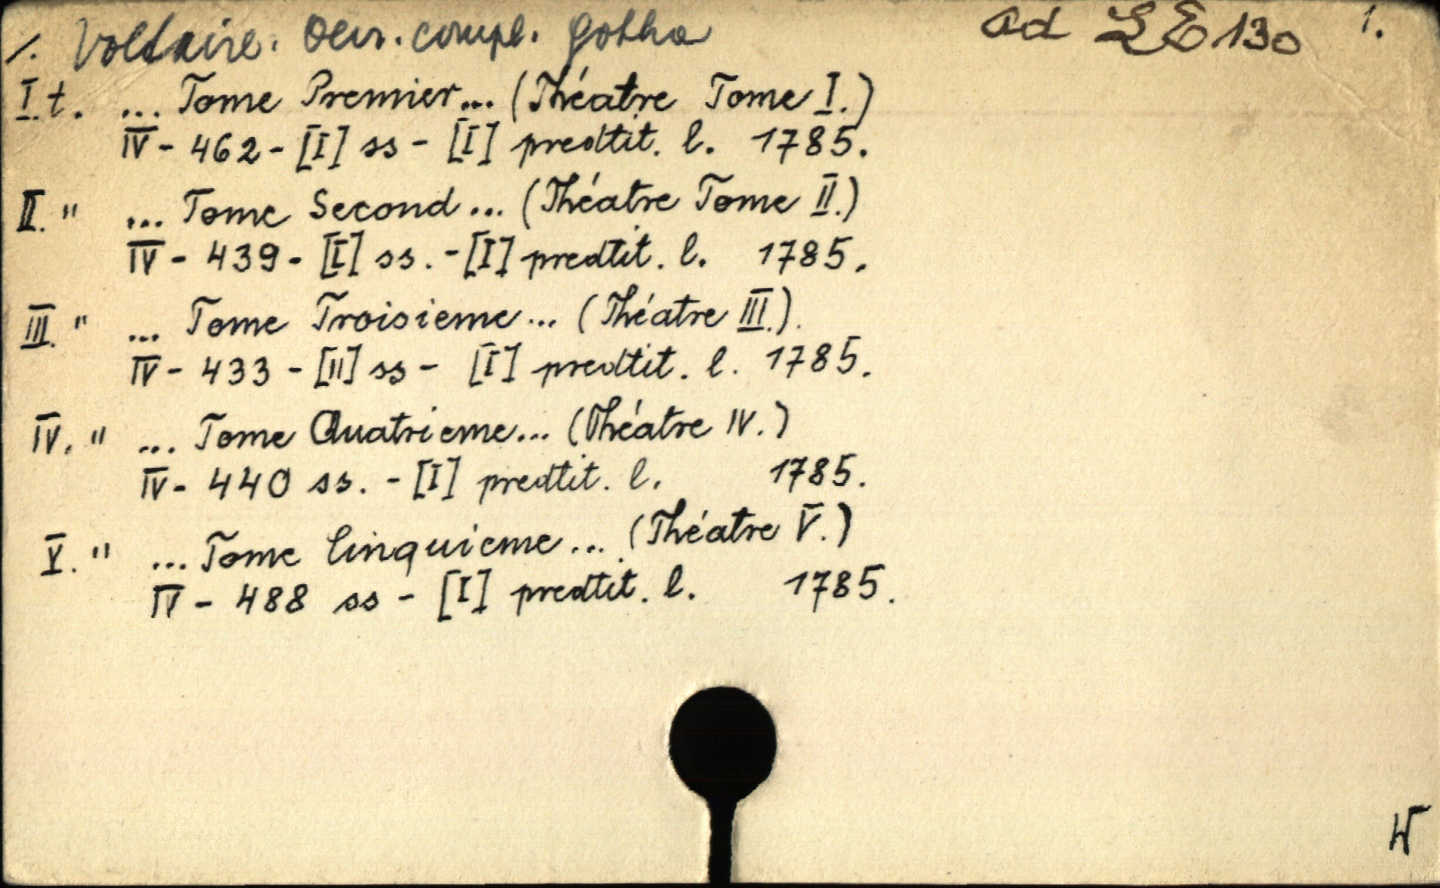 1. Voltaire. Oeuv. compl. Gotha ad LE 130 1.
I.t. ... Tome Premier... (Théatre Tome I.)
IV - 462 - [I] ss - [I] predtit. l. 1785.
II. " ... Tome Second... (Théatre Tome II.)
IV - 439 - [I] ss. - [I] predtit. l. 1785.
III. " ... Tome Troisieme... (Théatre III.).
IV - 433 - [II] ss - [I] predtit. l. 1785.
IV. " ... Tome Quatrieme... (Théatre IV.)
IV - 440 ss. - [I] predtit. l. 1785.
V. " ... Tome Cinquieme... (Théatre V.)
IV - 488 ss - [I] predtit. l. 1785.